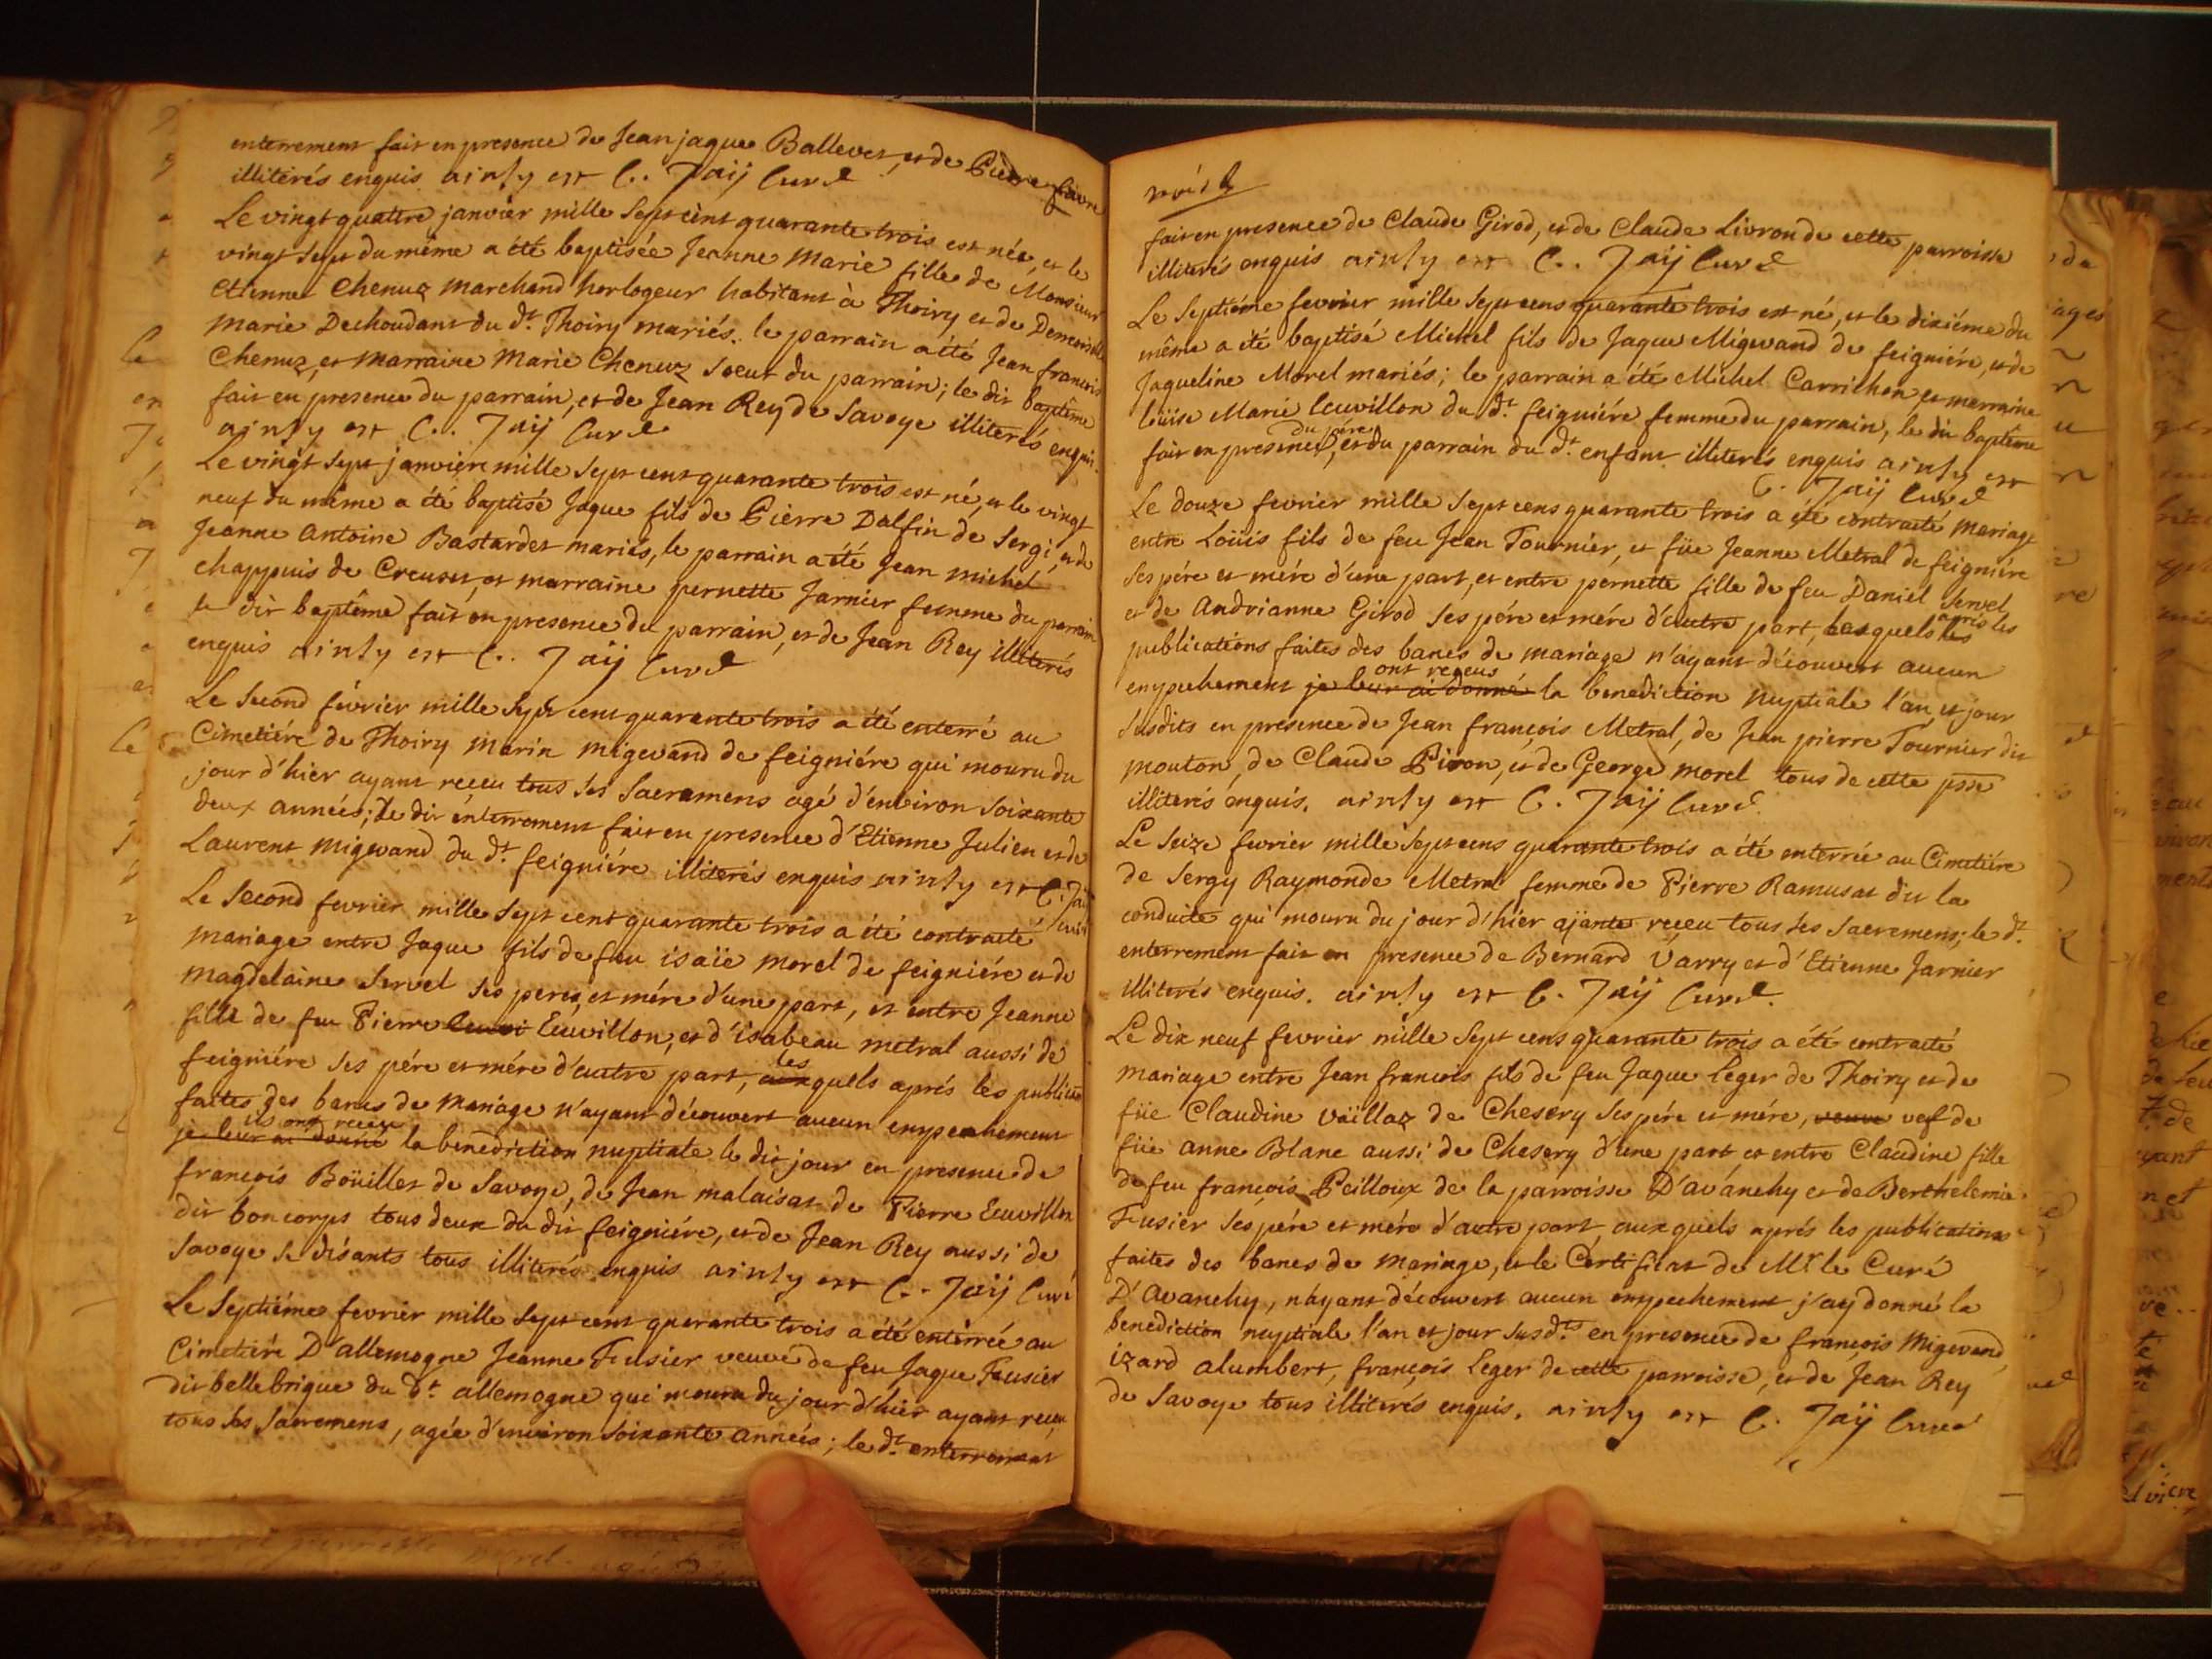 enterrement fait en presence de Jean jaque Ballevet, et de Pierre favre
illiterés enquis ainsy est C. Jaÿ Curé
Le vingt quattre janvier mille sept cent quarante trois est née, et le
vingt sept du même a été baptisée Jeanne Marie fille de Monsieur
Etienne Chenuz marchand horlogeur habitant à Thoiry et de Demoiselle
Marie Dechoudant du dt. Thoiry mariés. le parrain a été Jean francois
Chenuz, et marraine Marie Chenuz soeur du parrain; le dit baptême
fait en presence du parrain, et de Jean Rey de Savoye illiterés enquis.
ainsy est C. Jaÿ Curé
Le vingt sept janvier mille sept cent quarante trois est né, et le vingt
neuf du même a été baptisé Jaque fils de Pierre Dalfin de Sergi, et de
Jeanne Antoine Bastardet mariés, le parrain a été Jean michel
chappuis de Creuset, et marraine pernette Jarnier femme du parrain
le dit baptême fait en presence du parrain, et de Jean Rey illiterés
enquis ainsy est C. Jaÿ Curé
Le second février mille sept cent quarante trois a été enterré au
Cimetiére de Thoiry Marin migevand de feigniére qui mourn du
jour d'hier ayant receu tous ses Sacremens agé d'environ soixante
deux années; Le dit enterrement fait en presence d'Etienne Julien et de
Laurent migevand du dt. feigniére illiterés enquis ainsy est C. Jaÿ
Curé
Le second fevrier mille sept cent quarante trois a été contracté
mariage entre Jaque fils de feu isaïe morel de feigniére et de
magdelaine Servel ses peres, et mére d'une part, et entre Jeanne
fille de feu Pierre Euvillon, et d'isabeau metral aussi de
les
feigniére ses pére et mére d'autre part, auxquels aprés les publications
faites des bancs de mariage n'ayant découvert aucun enpechement
ils ont receu
je leur ai donné la benediction nuptiale le dit jour en presence de
françois Boüillet de Savoye, de Jean malaisat de Pierre Euvillon
dit boncorps tous deux du dit feigniére, et de Jean Rey aussi de
Savoye se disants tous illiterés enquis ainsy est C. Jaÿ Curé
Le Septiéme fevrier mille sept cent quarante trois a été enterrée au
Cimetiére D'allemogne Jeanne Fusier veuve de feu Jaque Fusier
dit bellebrique du dt. allemogne qui mourn du jour d'hier ayant receu
tous ses sacremens, agée d'environ soixante années; le dt. enterrement
fait en presence de Claude Girod, et de Claude Livron de cette parroisse
illiterés enquis ainsy est C. Jaÿ Curé
Le Septiéme fevrier mille sept cens quarante trois est né, et le dixiéme du
même a été baptisé Michel fils de Jaque Migevand de feigniére, et de
Jaqueline Morel mariés; le parrain a été Michel Carrilhon et marraine
Loüise Marie leuvillon du dt. feigniére femme du parrain, le dit baptême
du pére
fait en presence, et du parrain du dt. enfant illiterés enquis ainsy est
C. Jaÿ Curé
Le douze fevrier mille sept cens quarante trois a été contracté mariage
entre Loüis fils de feu Jean Tournier, et füe Jeanne Metral de feigniére
ses pére et mére d'une part, et entre pernette fille de feu Daniel Servel
et de Andrianne Girod ses pére et mére d'autre part, lesquels aprés les
publications faites des bancs de mariage n'ayant découvert aucun
ont receus
enpechement je leur ai donné la benediction nuptiale l'an et jour
susdits en presence de Jean françois Metral, de Jean pierre Tournier dit
mouton, de Claude Piron, et de George morel tous de cette psse
illiterés enquis. ainsy est C. Jaÿ Curé
Le Seize fevrier mille sept cens quarante trois a été enterrée au Cimetiére
de Sergy Raymonde Metral femme de Pierre Ramusat dit la
conduite qui mourn du jour d'hier aÿante receu tous ses sacremens; le dt.
enterrement fait en presence de Bernard Varry et d'Etienne Jarnier
illiterés enquis. ainsy est C. Jaÿ Curé
Le dix neuf fevrier mille sept cens quarante trois a été contracté
mariage entre Jean francois fils de feu Jaque Leger de Thoiry et de
füe Claudine Vaïllaz de Chesery ses pére et mére, veuve vef de
füe anne Blanc aussi de Chesery d'une part et entre Claudine fille
de feu françois Peilloux de la parroisse D'avanchy et de Berthelemie
Fusier ses pére et mére d'autre part, auxquels aprés les publications
faites des bancs de mariage, et le Certificat de Mr le Curé
D'Avanchy, n'ayant découvert aucun enpechement j'ay donné la
benediction nuptiale l'an et jour susdts en presence de françois Migevand,
izard alumbert, françois Leger de cette parroisse, et de Jean Rey
de Savoye tous illiterés enquis. ainsy est C. Jaÿ Curé